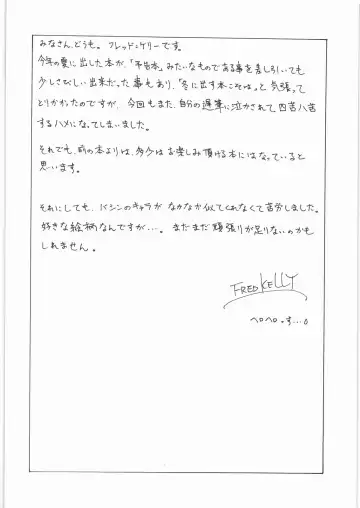 みなさん、どうも。フレッド・ケリーです。
今年の夏に出した本が、「予告本」みたいなものである事を差し引いても
少しさびしい出来だった事もあり、「冬に出す本こそは」と気張って
とりかかったのですが、今回もまた、自分の遅筆に泣かされて四苦八苦
するハメになってしまいました。
それでも、前の本よりは、多少はお楽しみ頂ける本にはなっていると
思います。
それにしても、バシンのキャラが なかなか似てくれなくて苦労しました。
好きな絵柄なんですが…。まだまだ頑張りが足りないのかも
しれません。
FRED KELLY
ヘロヘロっす…。